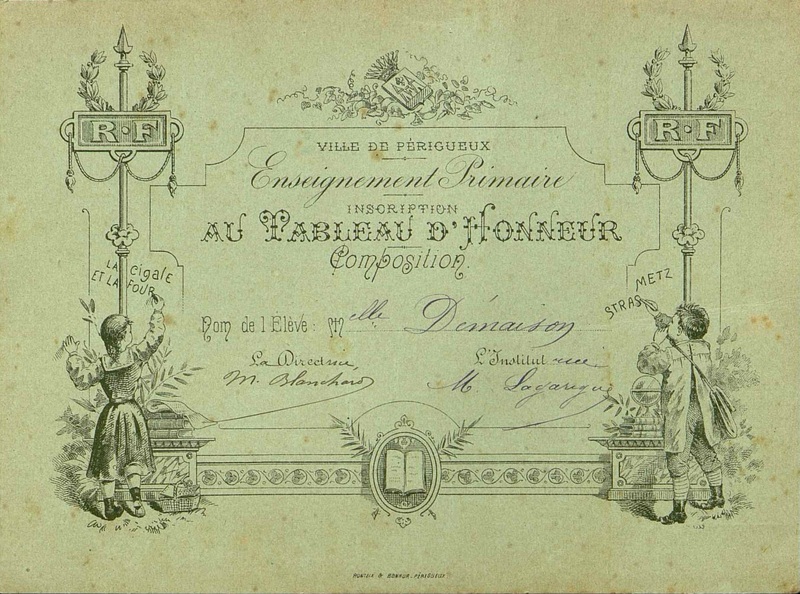 R·F
R·F
VILLE DE PÉRIGUEUX
Enseignement Primaire
INSCRIPTION
AU TABLEAU D'HONNEUR
Composition.
LA cigale
ET LA FOUR
METZ
STRAS
Nom de l'Elève : Mlle Démaison
La Directrice, L'Institutrice
M. Blanchard M. Lagarigue